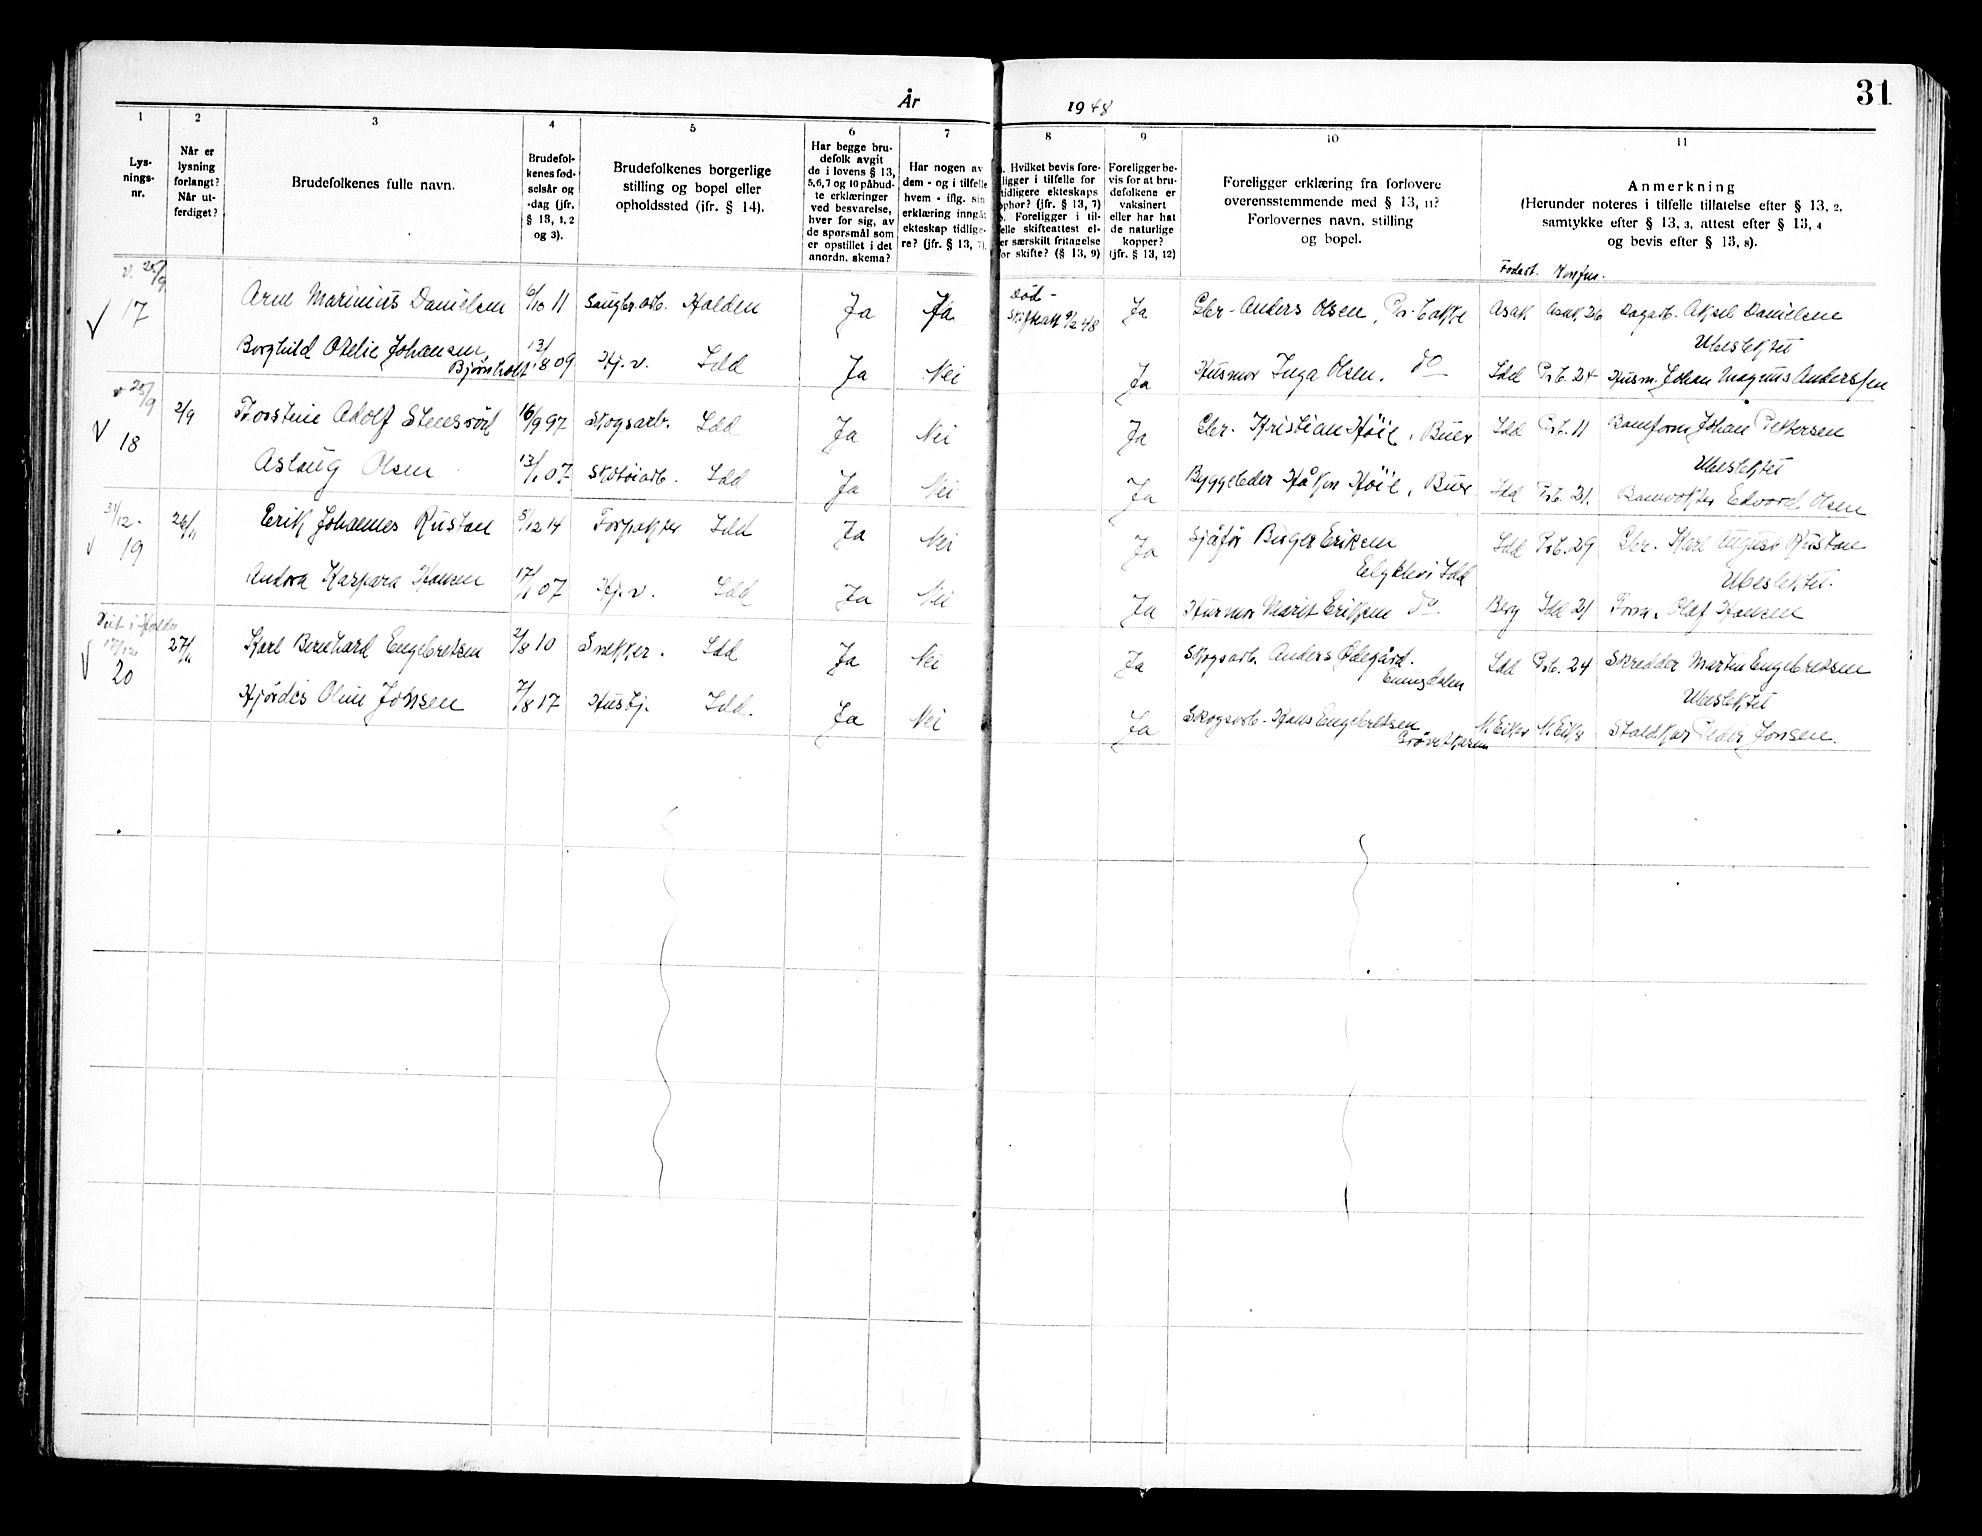 31
År 1948
1 2 3 4 5 6 7 8 9 10 11
Lys-
nings-
nr.
Når er
lysning
forlangt?
Når ut-
ferdiget?
Brudefolkenes fulle navn.
Brudefol-
kenes fød-
selsår og
-dag (jfr.
§ 13, 1, 2
og 3).
Brudefolkenes borgerlige
stilling og bopel eller
opholdssted (jfr. § 14).
Har begge bru-
defolk avgit
de i lovens § 13,
5, 6, 7 og 10 påbud-
te erklæringer
ved besvarelse,
hver for sig, av
de spørsmål som
er opstillet i det
anordn. skema?
Har nogen av
dem - og i tilfelle
hvem - iflg. sin
erklæring inngåt
ekteskap tidlige-
re? (jfr. § 13, 7).
Hvilket bevis fore-
ligger i tilfelle for
tidligere ekteskaps
ophør? (jfr. § 13, 7)
Foreligger i til-
elle skifteattest el-
er særskilt fritagelse
or skifte? (§ 13, 9)
Foreligger be-
vis for at bru-
defolkene er
vaksinert
eller har hat
de naturlige
kopper?
(jfr. § 13, 12)
Foreligger erklæring fra forlovere
overensstemmende med § 13, 11?
Forlovernes navn, stilling
og bopel.
Anmerkning
(Herunder noteres i tilfelle tillatelse efter § 13, 2,
samtykke efter § 13, 3, attest efter § 13, 4
og bevis efter § 13, 8).
Fødest. Konfus.
v. 25/9
17 Arne Marinius Danielsen 6/10 11 Saugbr.arb. Halden Ja Ja Død - Skifteatt 9/2 48 Ja Gbr. Anders Olsen, Asak Asak 26 Aksel Danielsen
Ubeslektet
Borghild Otelie Johansen 13/1 809 Hj.v. Idd Ja Nei Ja Husmor Inga Olsen. do Idd Prb. 24 Husm. Johan Magnus Anderssen
Bjørnholt
v 25/9
18 2/9 Thorstein Adolf Stensrød 16/9 97 Skogsarb. Idd Ja Nei Ja Gbr. Kristian Høie, Buer Idd Prb. 11 Johan Pettersen
Ubeslektet
Aslaug Olsen 13/1 07 Skotøiarb. Idd Ja Nei Ja Byggeleder Håkon Høie, Buer Idd Prb. 21. Banevokter Edvard Olsen
31/12-
19 26/11 Erik Johannes Rustan 5/12 14 Forpakter Idd Ja Nei Ja Sjåfør Birger Eriksen Idd Prb. 29 Gbr. Karl August Rustan
Elgklev i Idd
Ubeslektet.
Andora Kaspara Hansen 17/11 07 Hj.v. Idd Ja Nei Ja Husmor Marit Eriksen do Berg Idd 21 Olaf Hansen
Viet i Halden
20 27/11 Karl Bernhard Engebretsen 2/8 10 Snekker. Idd Ja Nei Ja Skogsarb. Anders Ødegård. Idd Prb. 24 Skredder Martin Engebretsen
Enningdalen
Ubeslektet
Hjørdis Oline Johsen 7/8 17 Hushj. Idd. Ja Nei Ja Skogsarb. Hans Engebretsen N. Eiker N. Eik Staldkar Peder Jonsen.